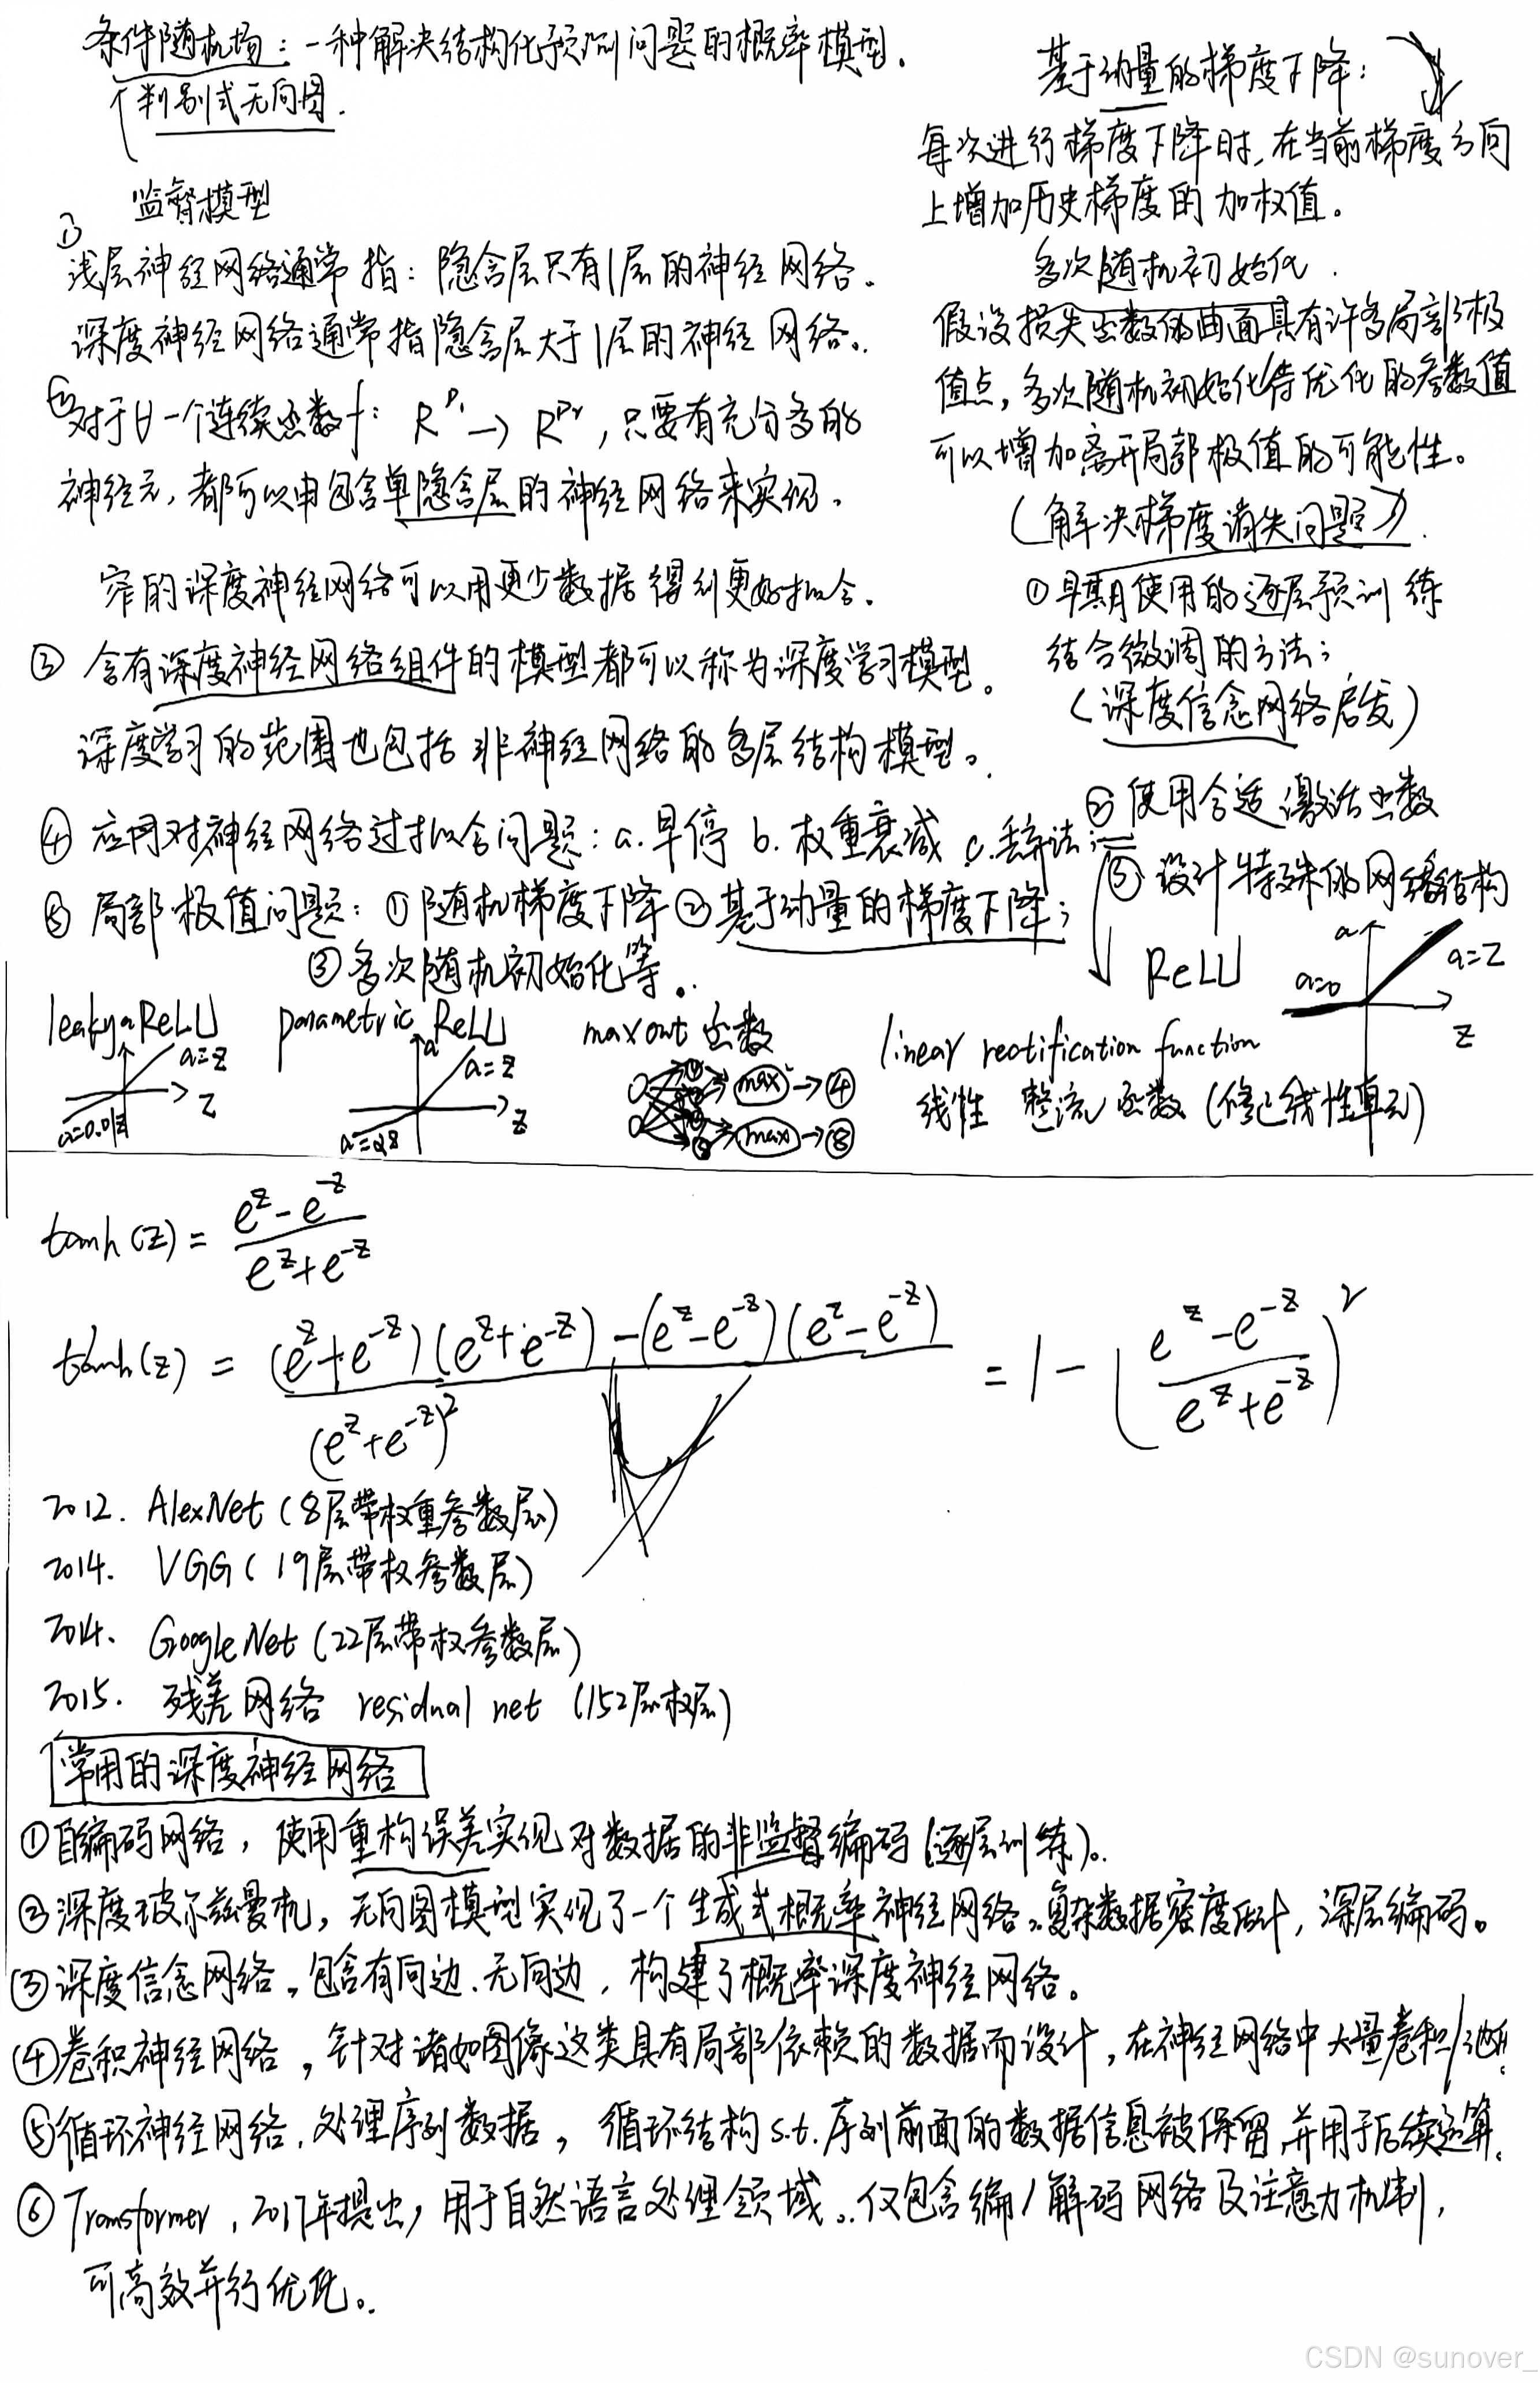 条件随机场：一种解决结构化预测问题的概率模型.
判别式无向图.
监督模型
① 浅层神经网络通常指：隐含层只有1层的神经网络。
深度神经网络通常指隐含层大于1层的神经网络。
② 对于∀一个连续函数f: R^P₁ → R^P₂, 只要有充分多的
神经元, 都可以由包含单隐含层的神经网络来实现.
窄的深度神经网络可以用更少数据得到更好拟合.
③ 含有深度神经网络组件的模型都可以称为深度学习模型。
深度学习的范围也包括非神经网络的多层结构模型。
④ 应对神经网络过拟合问题：a.早停 b.权重衰减 c.丢弃法;
⑤ 局部极值问题：①随机梯度下降 ②基于动量的梯度下降;
③多次随机初始化等。
基于动量的梯度下降：
每次进行梯度下降时, 在当前梯度方向
上增加历史梯度的加权值。
多次随机初始化.
假设损失函数的曲面具有许多局部极
值点, 多次随机初始化待优化的参数值
可以增加离开局部极值的可能性。
(解决梯度消失问题)
①早期使用的逐层预训练
结合微调的方法;
(深度信念网络启发)
②使用合适激活函数
③设计特殊的网络结构
ReLU
a
a=0
a=z
z
linear rectification function
线性整流函数 (修正线性单元)
leaky ReLU
a=z
z
a=0.01z
parametric ReLU
a
a=z
z
a=αz
maxout 函数
max → ④
max → ⑧
tanh(z) = (e^z - e^-z) / (e^z + e^-z)
tanh'(z) = ((e^z + e^-z)(e^z + e^-z) - (e^z - e^-z)(e^z - e^-z)) / (e^z + e^-z)² = 1 - ((e^z - e^-z) / (e^z + e^-z))²
2012. AlexNet (8层带权重参数层)
2014. VGG (19层带权参数层)
2014. GoogleNet (22层带权参数层)
2015. 残差网络 residual net (152层权层)
常用的深度神经网络
①自编码网络, 使用重构误差实现对数据的非监督编码(逐层训练)。
②深度玻尔兹曼机, 无向图模型实现了一个生成式概率神经网络。复杂数据密度估计, 深层编码。
③深度信念网络。包含有向边.无向边, 构建了概率深度神经网络。
④卷积神经网络, 针对诸如图像这类具有局部依赖的数据而设计, 在神经网络中大量卷积/池化。
⑤循环神经网络, 处理序列数据, 循环结构 s.t. 序列前面的数据信息被保留,并用于后续运算.
⑥Transformer, 2017年提出, 用于自然语言处理领域。仅包含编/解码网络及注意力机制,
可高效并行优化。
CSDN @sunover_